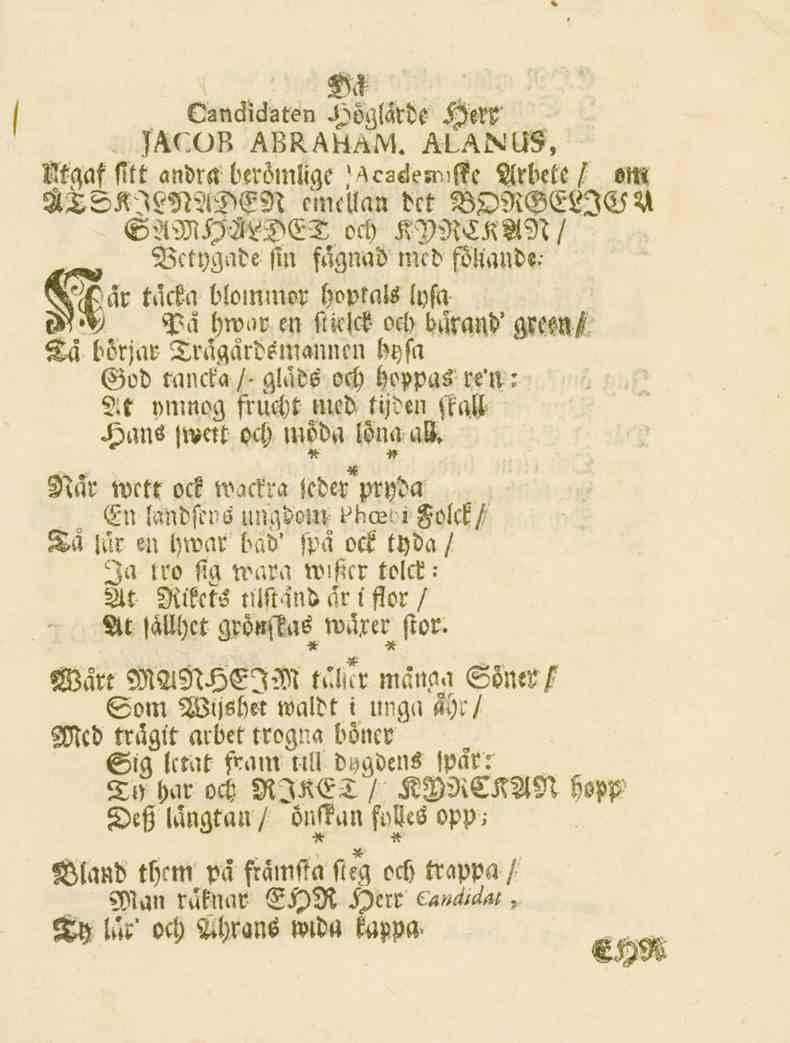 Då
Candidaten Höglärde Herr
JACOB ABRAHAM. ALANUS,
Utgaf sitt andra berömlige Academiske Arbete / om
ÅTSKILNADEN emellan det BORGELIGA
SAMHÄLDET och KYRCKAN /
Betygade sin fägnad med följande:
När täcka blommor hoptals lysa
På hwar en stielck och bärand' green /
Tå börjar Trägårdsmannen hysa
God tancka / gläds och hoppas re'n:
At ymnog frucht med tijden skall
Hans swett och möda löna all.
* *
*
När wett ock wackra seder pryda
En landsens ungdom Phœbi Folck /
Tå lär en hwar båd' spå ock tyda /
Ja tro sig wara wißer tolck:
At Rikets tilstånd är i flor /
At sällhet grönskas wäxer stor.
* *
*
Wårt MANHEIM täljer många Söner /
Som Wijshet waldt i unga åhr /
Med trägit arbet trogna böner
Sig letat fram till dygdens spår:
Ty har och RIKET / KYRCKAN hopp
Deß längtan / önskan fylles opp;
* *
*
Bland them på främsta steg och trappa /
Man räknar EHR Herr Candidat,
Ty lär' och Ährans wida kappa
EHR